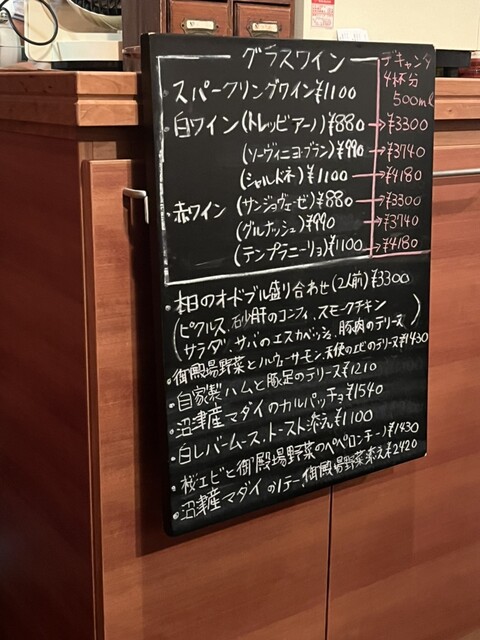 グラスワイン
デキャンタ
4杯分
500ml
・スパークリングワイン¥1100
・白ワイン(トレッビアーノ)¥880→¥3300
(ソーヴィニヨ・ブラン)¥990→¥3740
(シャルドネ)¥1100→¥4180
・赤ワイン(サンジョヴェーゼ)¥880→¥3300
(グルナッシュ)¥990→¥3740
(テンプラニーリョ)¥1100→¥4180
・柏のオドブル盛り合わせ(2人前)¥3300
(ピクルス、砂肝のコンフィ、スモークチキン
サラダ、サバのエスカベッシュ、豚肉のテリーズ)
・御殿場野菜とノルウーサーモン、天使のエビのテリーズ¥1430
・自家製ハムと豚足のテリーズ¥1210
・沼津産マダイのカルパッチョ¥1540
・白レバームース、トースト添え¥1100
・桜エビと御殿場野菜のペペロンチーノ¥1430
・沼津産マダイのポテー、御殿場野菜添え¥2420